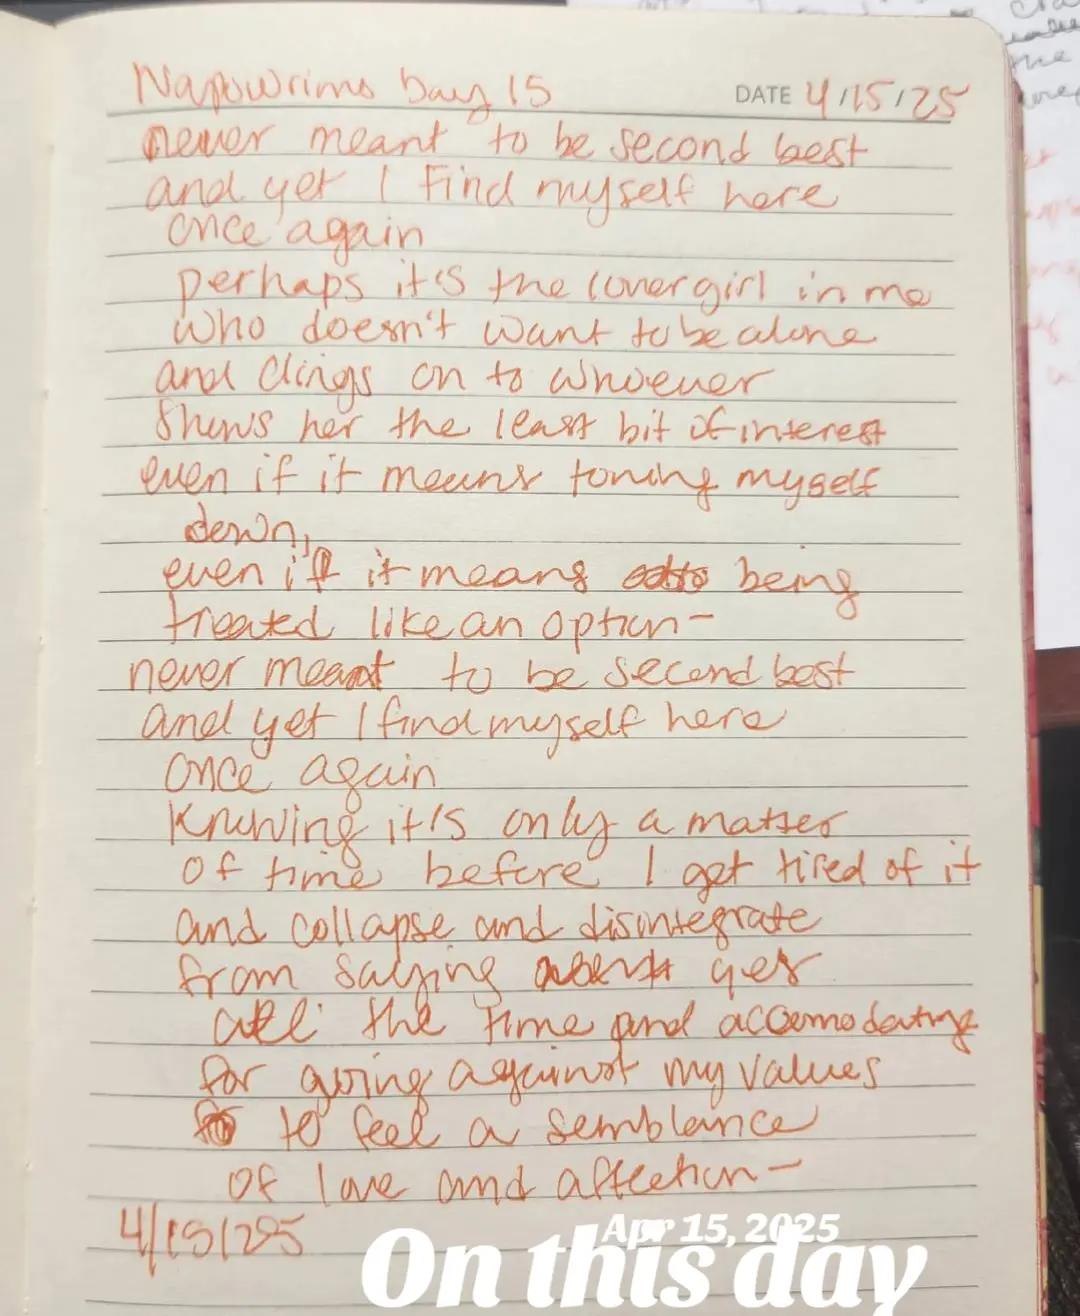 Napowrimo Day 15
DATE 4/15/25
never meant to be second best
and yet I find myself here
once again
perhaps it's the lovergirl in me
who doesn't want to be alone
and clings on to whoever
shows her the least bit of interest
even if it means toning myself
down,
even if it means being
treated like an option-
never meant to be second best
and yet I find myself here
once again
knowing it's only a matter
of time before I get tired of it
and collapse and disintegrate
from saying yes
all the time and accomodating
for going against my values
to feel a semblance
of love and affection-
4/15/25
Apr 15, 2025
On this day